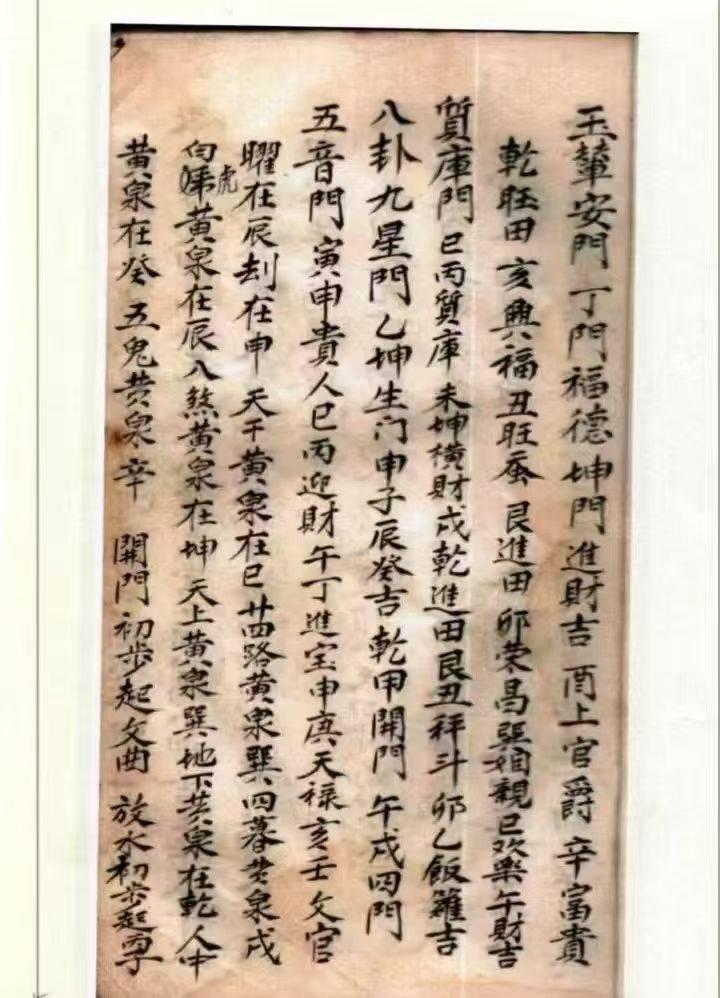 玉輦安門丁門福德坤門進財吉酉上官爵辛富貴
乾旺田亥興福丑旺蚕艮進田卯荣昌巽姻親巳欢樂午財吉
質庫門巳丙質庫未坤横財戌乾進田艮丑秤斗卯乙飯籮吉
八卦九星門乙坤生门申子辰癸吉乾甲開門午戌四門
五音門寅申貴人巳丙迎財午丁進宝申庚天禄亥壬文官
曜在辰刦在申天干黄泉在巳廿四路黄泉巽四暮黄泉戌
白虎黄泉在辰八煞黄泉在坤天上黄泉巽地下黄泉在乾人中
黄泉在癸五鬼黄泉辛開門初步起文曲放水初步起尊